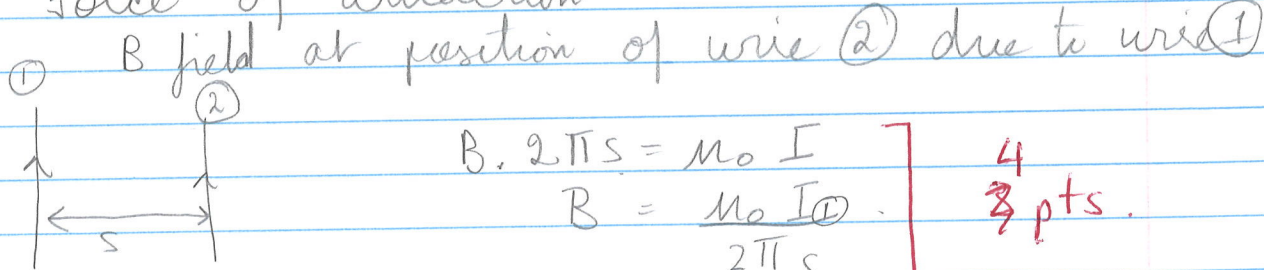 force of attraction
B field at position of wire ② due to wire ①
①
②
B. 2πs = μ₀ I
B = μ₀ I① .
2πs
s
4
pts.